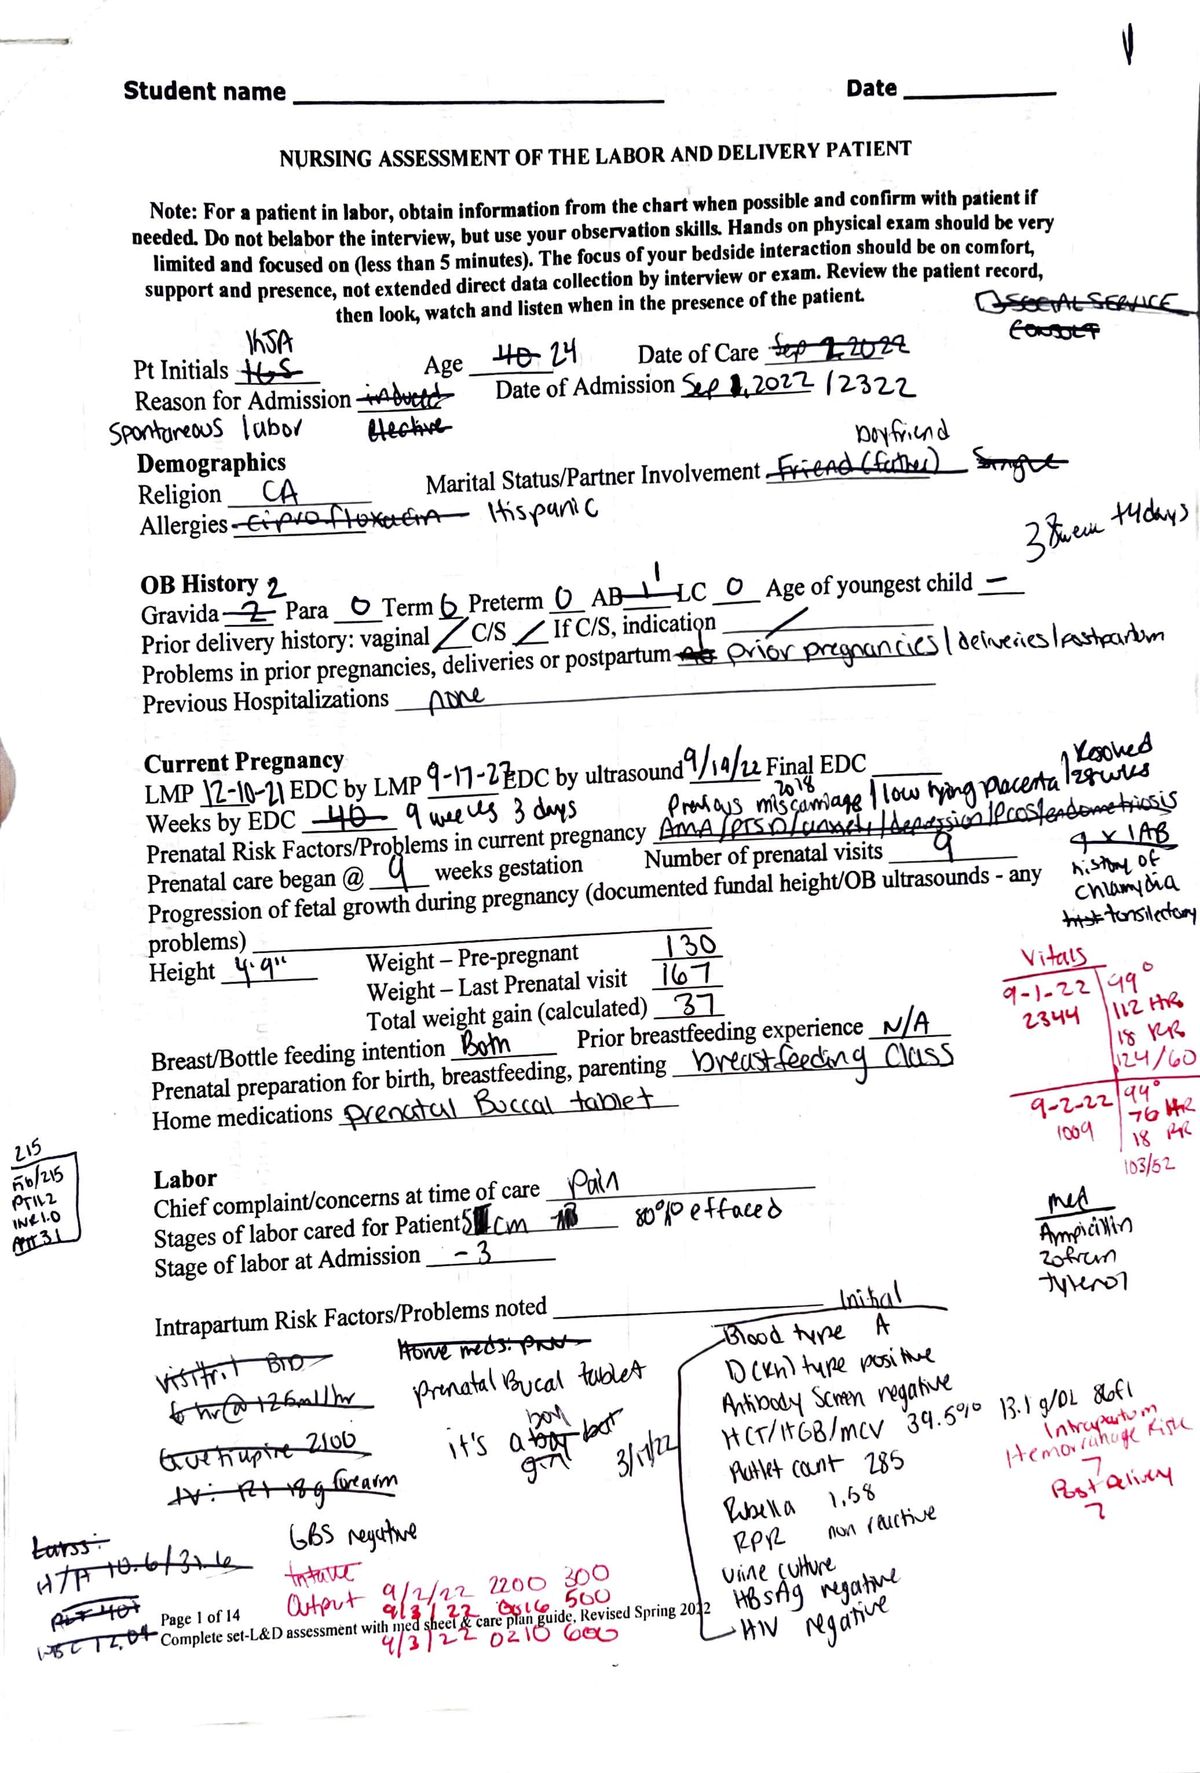 Student name Date
NURSING ASSESSMENT OF THE LABOR AND DELIVERY PATIENT
Note: For a patient in labor, obtain information from the chart when possible and confirm with patient if
needed. Do not belabor the interview, but use your observation skills. Hands on physical exam should be very
limited and focused on (less than 5 minutes). The focus of your bedside interaction should be on comfort,
support and presence, not extended direct data collection by interview or exam. Review the patient record,
then look, watch and listen when in the presence of the patient.
SOCIAL SERVICE
CONSULT
KSA
Pt Initials Age 40 24 Date of Care Sep 2, 2022
Reason for Admission induced Date of Admission Sep 1, 2022 / 2322
Spontaneous labor Elective
boyfriend
Demographics Marital Status/Partner Involvement Friend (father) Single
Religion CA
Allergies Ciprofloxacin Hispanic
38 week +4days
OB History 2
Gravida 2 Para 0 Term 0 Preterm 0 AB 1 1 LC 0 Age of youngest child –
Prior delivery history: vaginal / C/S / If C/S, indication /
Problems in prior pregnancies, deliveries or postpartum no prior pregnancies / deliveries / postpartum
Previous Hospitalizations none
Current Pregnancy
LMP 12-10-21 EDC by LMP 9-17-22 EDC by ultrasound 9/19/22 Final EDC
Weeks by EDC 40 9 weeks 3 days
Previous miscarriage 2018 / low lying placenta / Resolved 28wks
Prenatal Risk Factors/Problems in current pregnancy AMA/PTSD/anxiety/depression/PCOS/endometriosis
Prenatal care began @ 9 weeks gestation Number of prenatal visits 9
g x 1 AB
history of
chlamydia
hist tonsilectomy
Progression of fetal growth during pregnancy (documented fundal height/OB ultrasounds - any
problems)
Height 4'9" Weight – Pre-pregnant 130
Weight – Last Prenatal visit 167
Total weight gain (calculated) 37
Vitals
9-1-22 99°
2344 112 HR
18 RR
124/60
9-2-22 99°
1009 76 HR
18 RR
103/52
Breast/Bottle feeding intention Both Prior breastfeeding experience N/A
Prenatal preparation for birth, breastfeeding, parenting breastfeeding Class
Home medications prenatal Buccal tablet
215
PT 11.2
INR 1.0
31
Labor
Chief complaint/concerns at time of care Pain
Stages of labor cared for Patient 5 cm 80% effaced
Stage of labor at Admission -3
med
Ampicillin
Zofran
tylenol
Intrapartum Risk Factors/Problems noted
Initial
Blood type A
D(Rh) type positive
Antibody Screen negative
HCT/HGB/MCV 39.5% 13.1 g/DL 86fl
Platlet count 285
Rubella 1.58
RPR non reactive
urine culture
HBsAg negative
HIV negative
3/17/22
Intrapartum
Hemorrhage Risk
?
Post Delivery
?
BID
Home meds:
Prenatal Bucal tablet
6 hr @ 125ml/hr
it's a boy
girl
2100
IV: Rt 18g forearm
GBS negative
Labs:
H/H 10.6/31.6
PLT 401
WBC 12.04
Intake
Output 9/2/22 2200 300
9/3/22 0016 500
9/3/22 0210 600
Page 1 of 14
Complete set-L&D assessment with med sheet & care plan guide, Revised Spring 2022